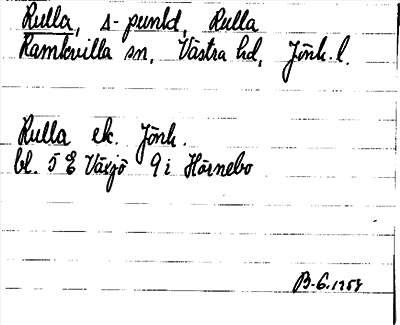 Rulla, s-punkt, Rulla
Ramkvilla sn, Västra hd, Jönk. l.
Rulla ek. Jönk.
bl. 5 E Växjö 9 i Hörnebo
B-6.1958